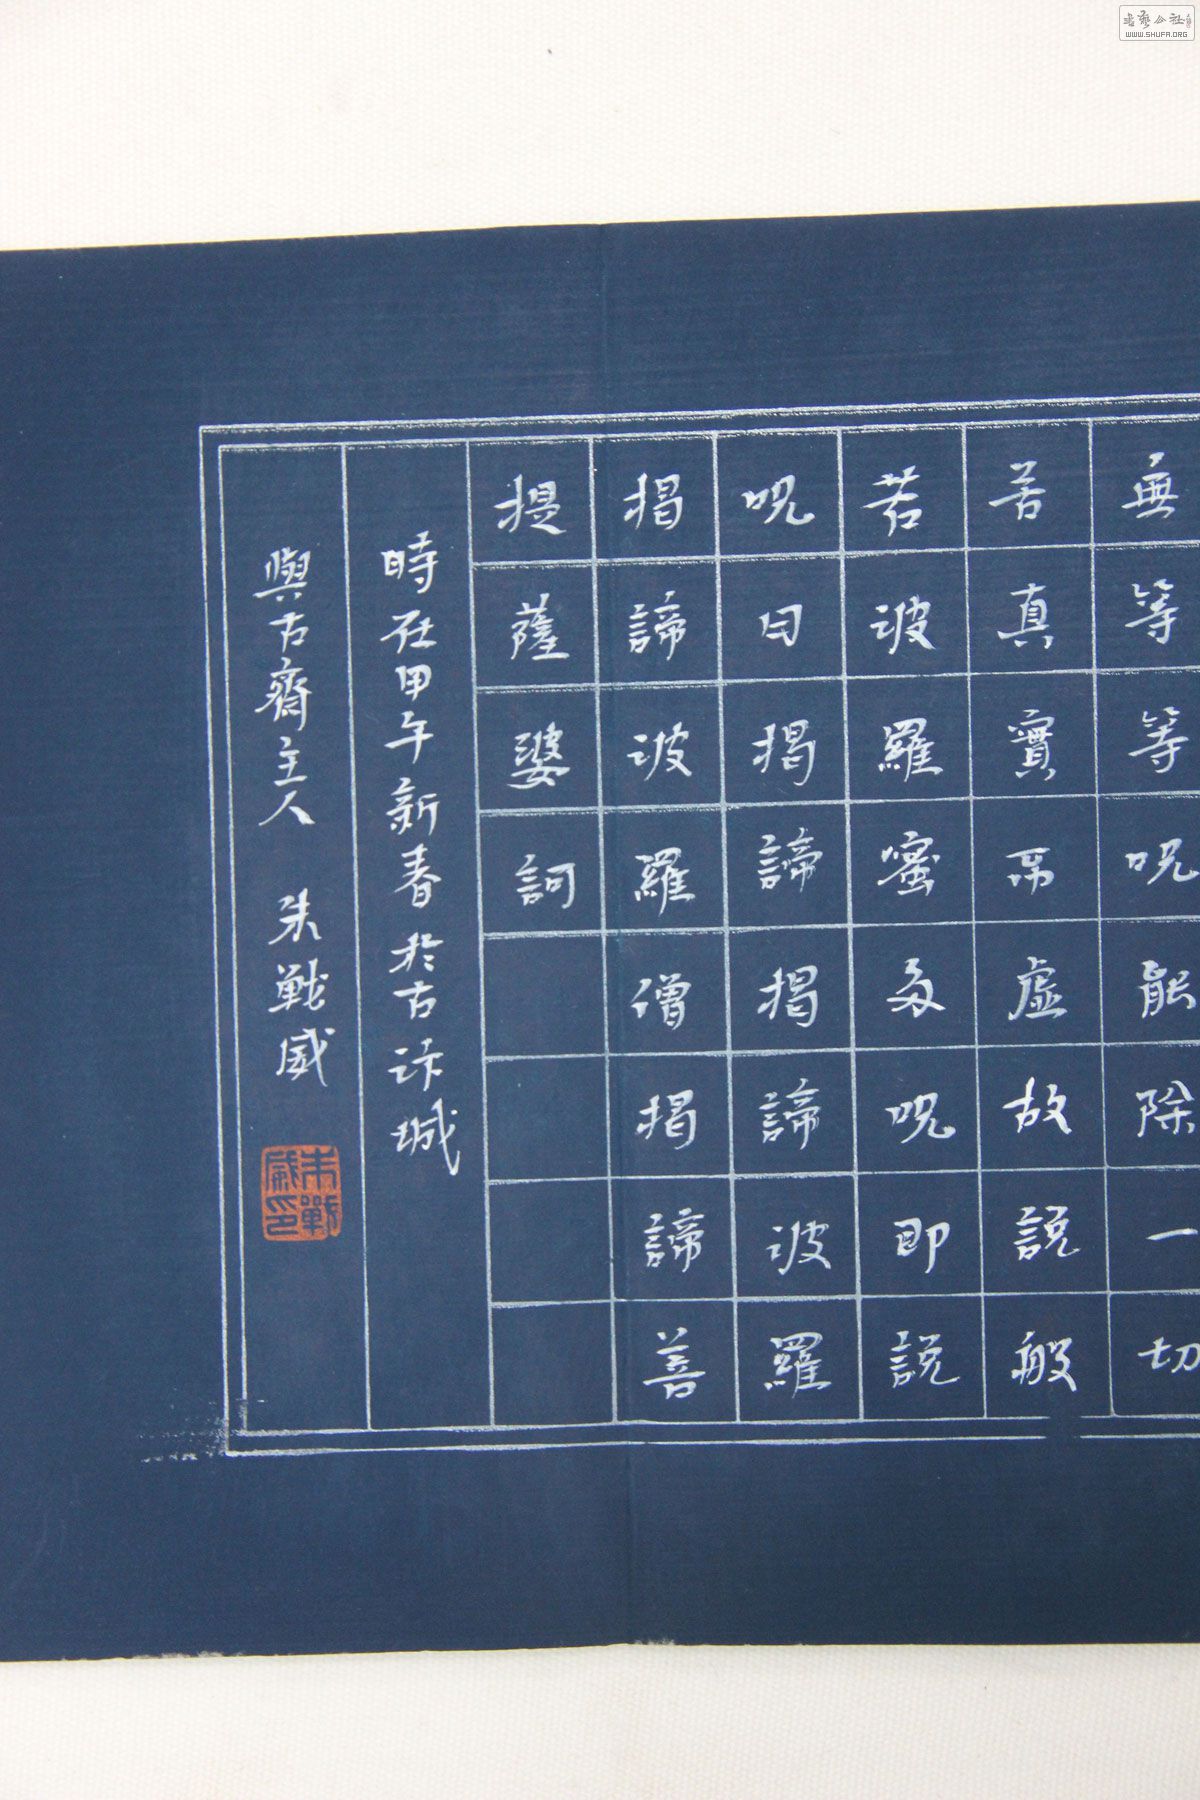 無等等呪能除一切
苦真實不虛故說般
若波羅蜜多呪即說
呪曰揭諦揭諦波羅
揭諦波羅僧揭諦菩
提薩婆訶
時在甲午新春於古汴城
與古齋主人 朱戰威
朱戰威印
書藝公社
WWW.SHUFA.ORG